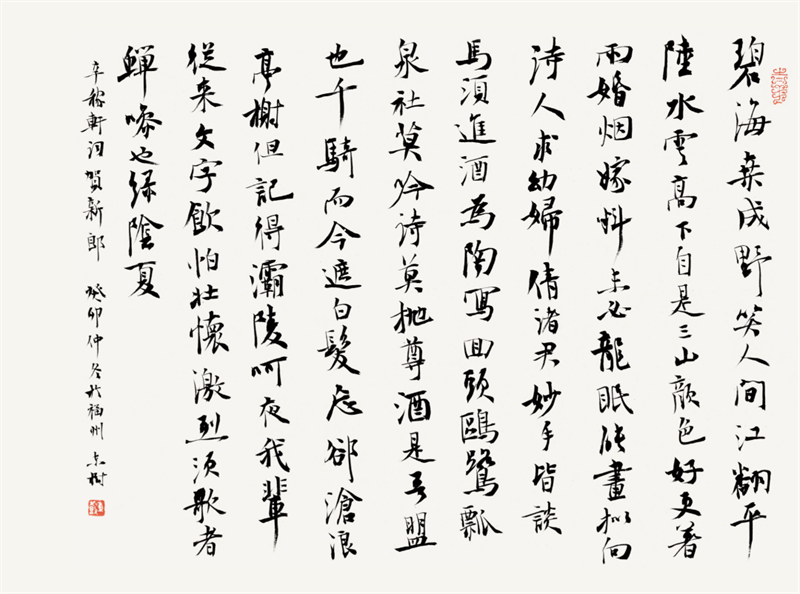 碧海桑成野笑人間江翻平
陸水雲高下自是三山顏色好更著
雨婚烟嫁料未必龍眠能畫擬向
詩人求幼婦倩諸君妙手皆談
馬須進酒為陶寫回頭鷗鷺瓢
泉社莫吟詩莫抛尊酒是吾盟
也千騎而今遮白髮忘卻滄浪
亭榭但記得灞陵呵夜我輩
從来文字飲怕壮懷激烈須歌者
蟬噪也綠陰夏
辛稼軒詞賀新郎 癸卯仲冬於福州